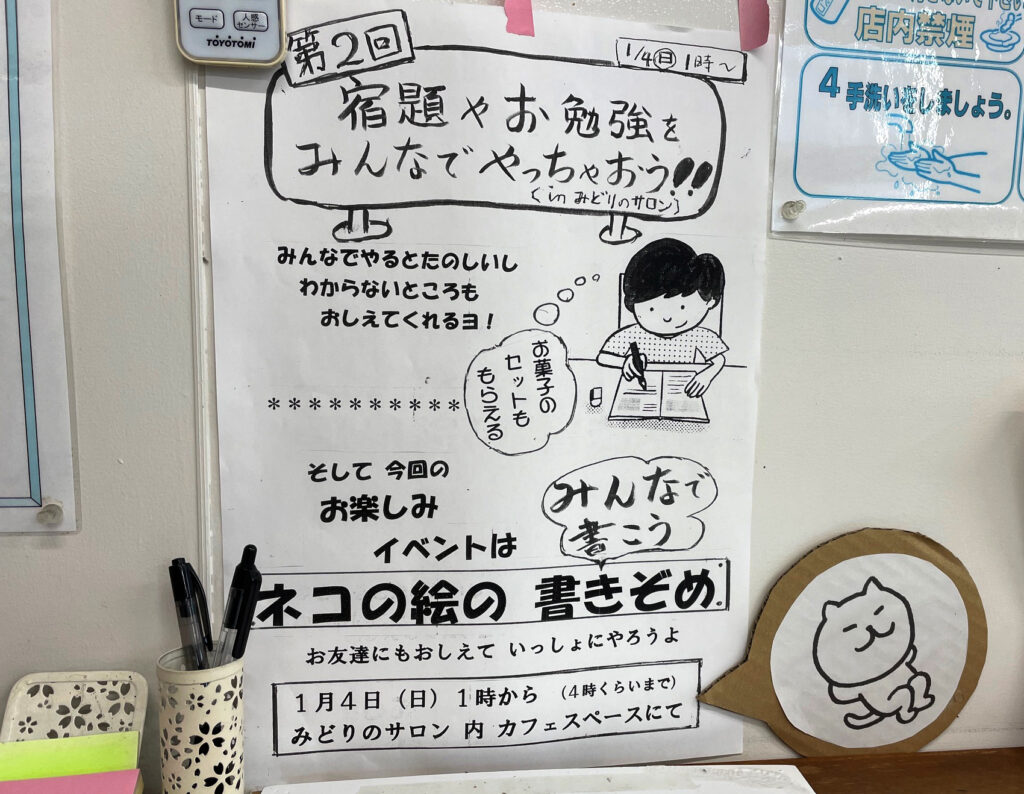 モード
人感
センサー
TOYOTOMI
第2回
1/4㊐ 1時〜
宿題やお勉強を
みんなでやっちゃおう!!
in みどりのサロン
みんなでやるとたのしいし
わからないところも
おしえてくれるヨ！
お菓子の
セットも
もらえる
＊＊＊＊＊＊＊＊＊＊
そして 今回の
お楽しみ
イベントは
みんなで
書こう
ネコの絵の 書きぞめ
お友達にもおしえて いっしょにやろうよ
１月４日（日）１時から （４時くらいまで）
みどりのサロン 内 カフェスペースにて
店内禁煙
4 手洗いをしましょう。